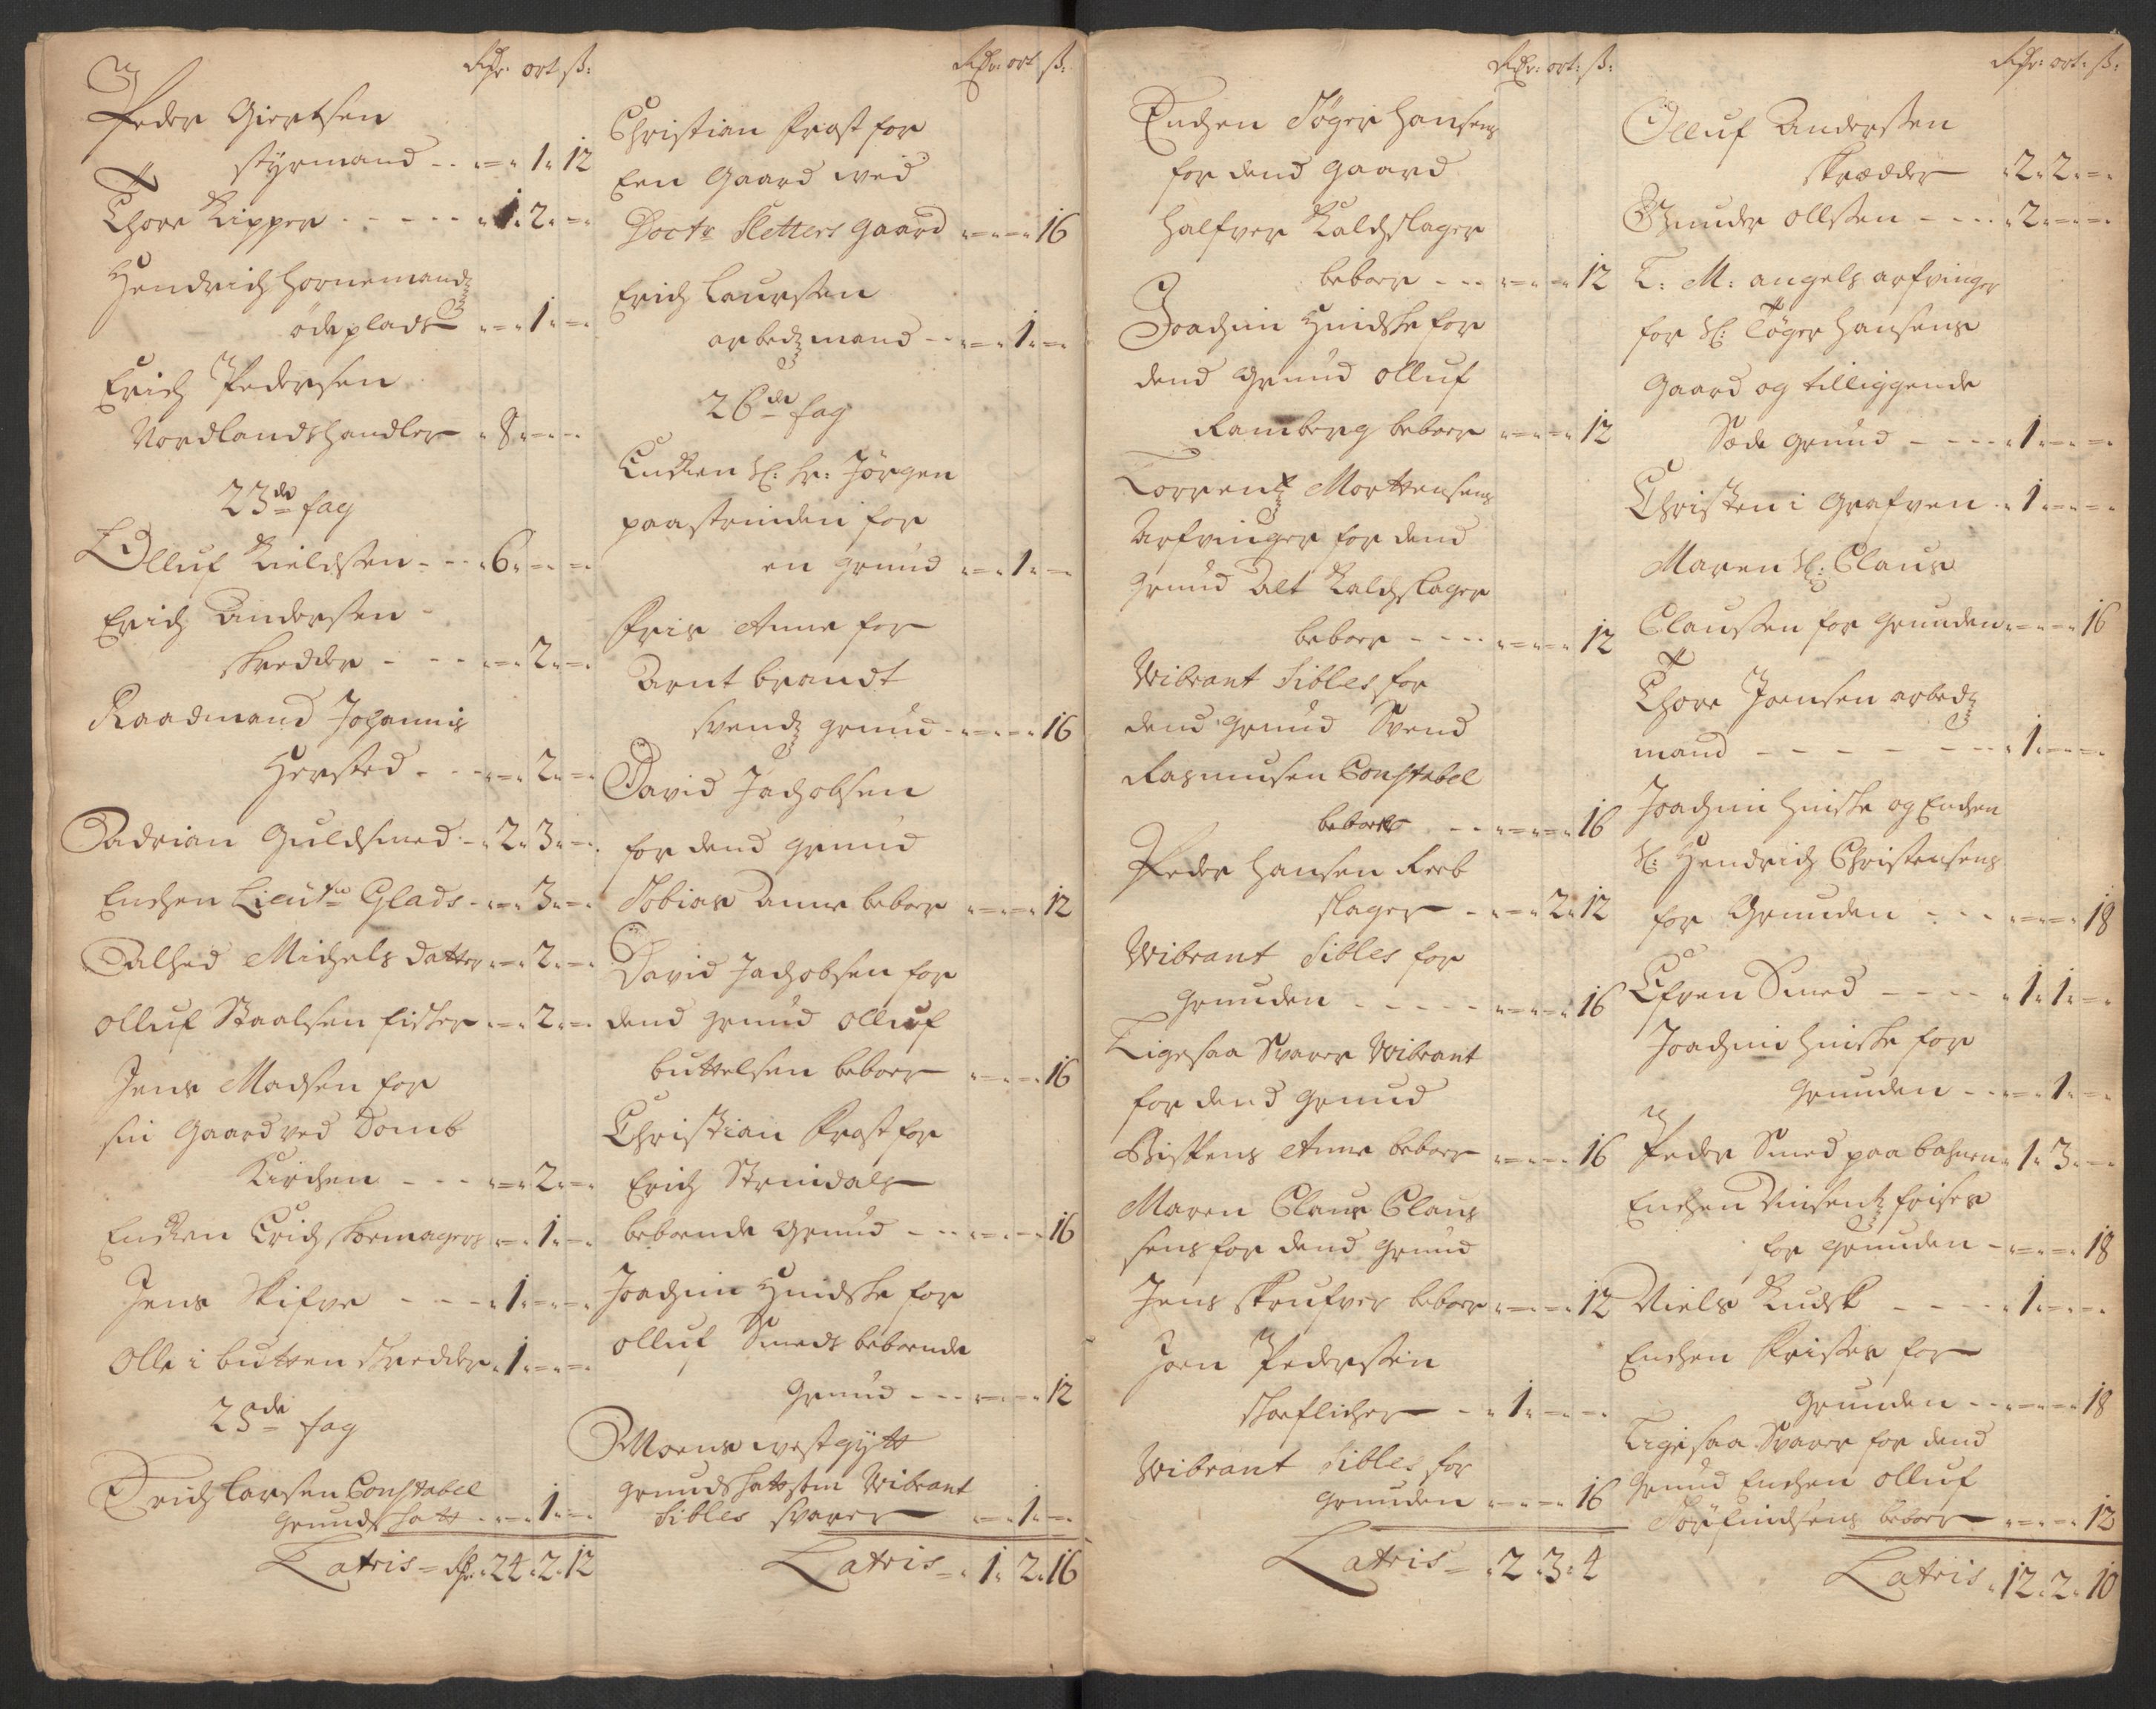 Rdr: ort ß:
Peder Giertsen
styrmand - - „=„ 1„ 12
Thore Kipper - - - - - „1„ 2„ =„
Hendrich hornemands
öde plads „=„ 1„ =„
Erich Pedersen
Nordlandshandler „8„ =„ =„
23de fag
Olluf Kieldsen - - „6„ =„ =„
Erich Andersen
skredder - - - „=„ 2„ =„
Raadmand Johannis
Hersted - - „=„ 2„ =„
Adrian Guldsmed - „2„ 3„ =„
Enchen Lieutn Glads - „=„ 3„ =„
Alhed Michels datter „=„ 2„ =„
olluf Staalsen fisker „=„ 2„ =„
Jens Madsen for
sin Gaard ved Domb
Kirchen - - - „=„ 2„ =„
Enchen Erich skomagers „=„ 1„ =„
Jens Skifve - - - „1„ =„ =„
Olle i butten skredder „1„ =„ =„
25de fag
Erich Larsen Constabel
grundskatt - „=„ 1„ =„
Latris = Rdr: 24„ 2„ 12
Rdr: ort ß:
Christian Frost for
Een Gaard wed
Doctr Sletters gaard „=„ =„ 16
Erich Laursen
arbedsmand - - „=„ 1„ =„
26de fag
Enchen Sl: hr: Jörgen
paa strinden for
en grund „=„ 1„ =„
Friis Anne for
Arnt brandt
svends grund - „=„ =„ 16
David Jachobsen
for dend grund
Tobias Anne beboer „=„ =„ 12
David Jachobsen for
dend grund olluf
buttelsen beboer „=„ =„ 16
Christian Frost for
Erich Strindals
beboende grund - - „=„ =„ 16
Joachim Hindske for
olluf Smeds beboende
grund - - - „=„ =„ 12
Moens westgytt
grundskatt som Wibrant
Sibles svarer „=„ 1„ =„
Latris = „1„ 2„ 16
Rdr: ort: ß:
Enchen Töger Hansens
for dend gaard
halfver Kaldslager
beboer - - „=„ =„ 12
Joachim Hindske for
dend grund olluf
Ramberg beboer „=„ =„ 12
Lorrentz Mortensens
Arfvinger for dend
grund Alt Kaldslager
beboer - - - „=„ =„ 12
Wibrant Sibles for
dend grund Svend
Rasmusen Constabel
beboer - - „=„ =„ 16
Peder Hansen Reeb
slager - „=„ 2„ 12
Wibrant Sibles for
grunden - - - - - „=„ =„ 16
Ligesaa Svarer Wibrant
for dend grund
Bispens Anne beboer „=„ =„ 16
Maren Claus Claus
sens for dend grund
Jens skrufver beboer „=„ =„ 12
Joen Pedersen
skoeflicher - - „1„ =„ =„
Wibrant Sibles for
grunden „=„ =„ 16
Latris = „2„ 3„ 4
Rdr: ort: ß:
Olluf Andersen
skrædder „2„ 2„ =„
Gunder ollsen - - - - „2„ =„ =„
T: M: angels arfvinger
for Sl: Töger Hansens
Gaard og tilliggende
Söde grund - - - - „1„ =„ =„
Christen i Grafven „1„ =„ =„
Maren Sl: Claus
Clausen for grunden „=„ =„ 16
Thore Joensen arbeds
mand - - - - - - „1„ =„ =„
Joachim Hinske og Enchen
Sl: Hendrich Christensens
for Grunden - - - „=„ =„ 18
Efven Smed - - - - „1„ 1„ =„
Joachim Hinske for
grunden - - „=„ 1„ =„
Peder Smed paa bachen „1„ 3„ =„
Enchen Vinsents friises
for grunden - „=„ =„ 18
Niels Kudsk - - - „1„ =„ =„
Enchen Frises for
grunden - - „=„ =„ 18
Ligesaa Svarer for dend
grund Enchen olluf
Torfindsens beboer „=„ =„ 12
Latris „12„ 2„ 10